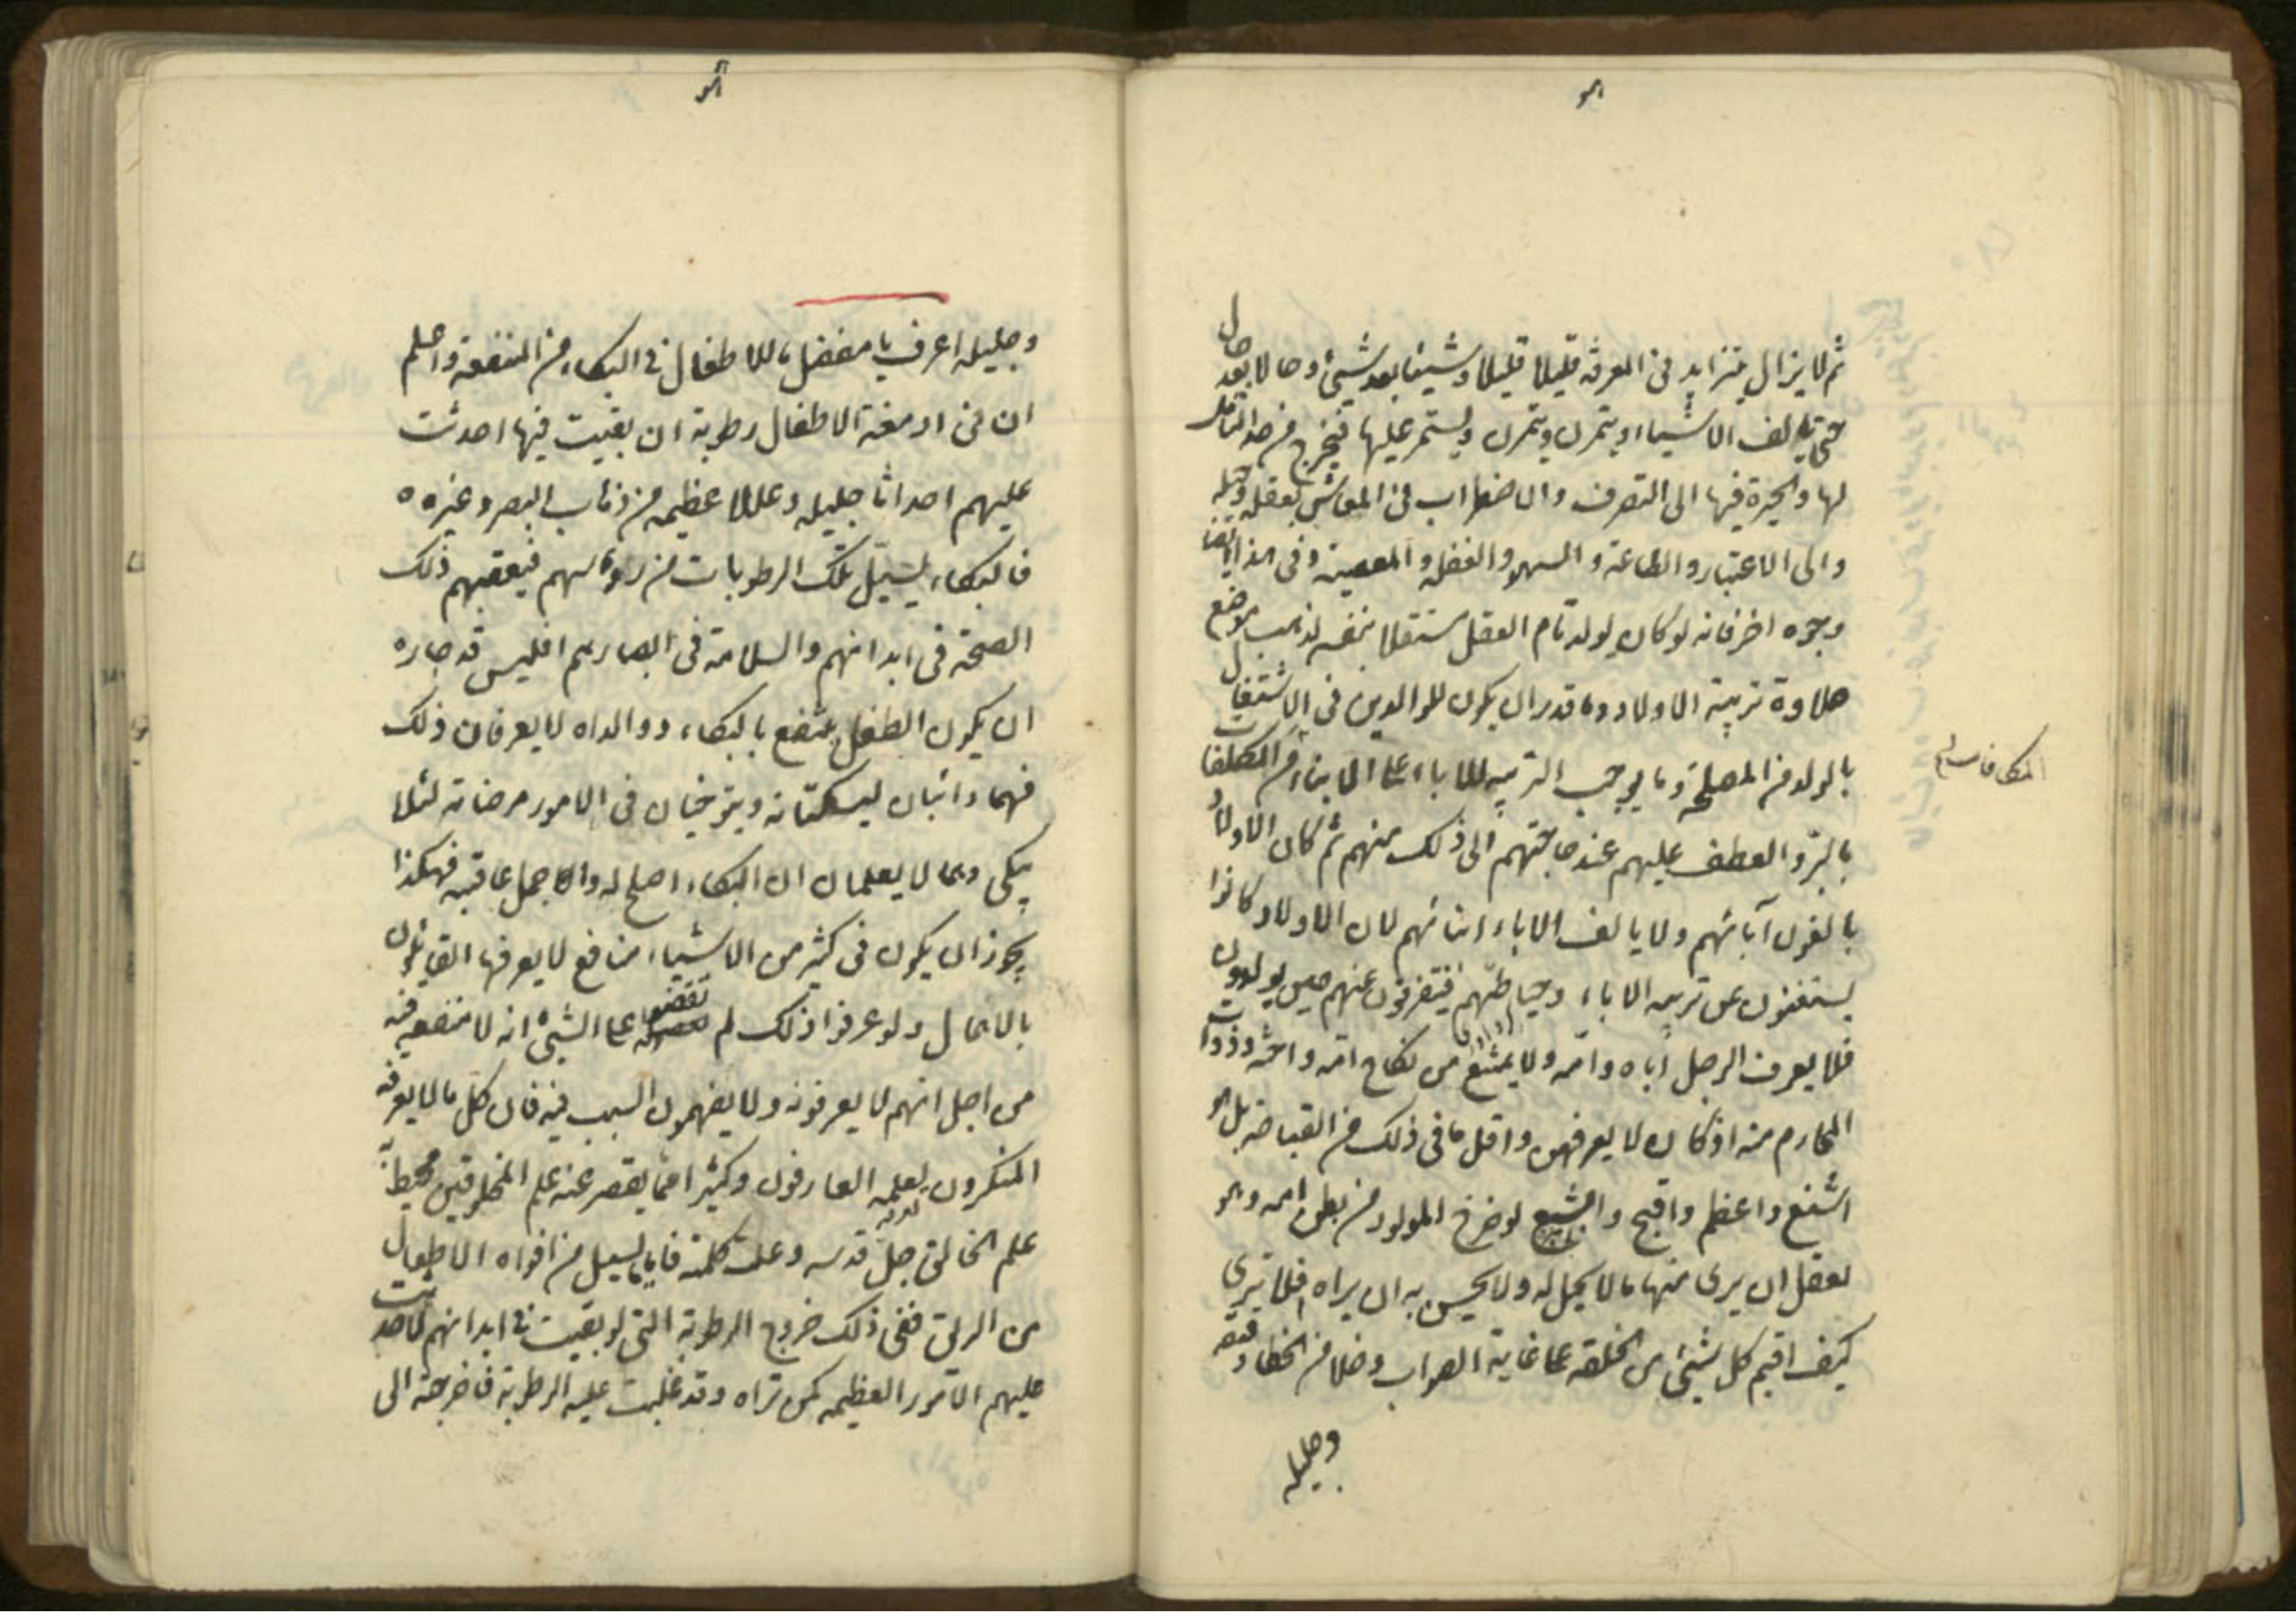 هو
ثم لا يزال يتزايد فى المعرفة قليلا قليلا وشيئا بعد شيئ وحالا بعد حال
حتى يالف الاشياء ويتمرن ويستمر عليها فيخرج من حد التامل
لها والحيرة فيها الى التصرف والاضطراب فى المعاش بعقله وحيلة
والى الاعتبار والطاعة والسهو والغفلة والمعصية وفى هذا ايضا
وجوه اخر فانه لو كان يولد تام العقل مستقلا بنفسه لذهب موضع
حلاوة تربية الاولاد وما قدر ان يكون للوالدين فى الاشتغال
بالولد من المصلحة وما يوجب التربية للاباء على الابناء من المكلفات
المكافات
بالبر والعطف عليهم عند حاجتهم الى ذلك منهم ثم كان الاولاد
يالفون آبائهم ولا يالف الاباء ابنائهم لان الاولاد كانوا
يستغنون عن تربية الاباء وحياطتهم فيتفرقون عنهم حين يولدون
فلا يعرف الرجل اباه وامه ولا يمتنع من نكاح امه واخته وذوات
المحارم منه اذ كان لا يعرفهن واقل ما فى ذلك من القباحة بل هو
اشنع واعظم واقبح وابشع لو خرج المولود من بطن امه وهو
يعقل ان يرى منها ما لا يحل له ولا يحسن به ان يراه افلا ترى
كيف اقيم كل شيئ من الخلقة على غاية الصواب وخلا من الخطا دقيقه
وجليله
هو
وجليله اعرف يا مفضل ما للاطفال فى البكاء من المنفعة واعلم
ان فى ادمغة الاطفال رطوبة ان بقيت فيها احدثت
عليهم احداثا جليله وعللا عظيمه من ذهاب البصر وغيره
فالبكاء يسيل تلك الرطوبات من رؤسهم فيعقبهم ذلك
الصحة فى ابدانهم والسلامة فى ابصارهم افليس قد جاز
ان يكون الطفل ينتفع بالبكاء ووالداه لا يعرفان ذلك
فهما دائبان ليسكتانه ويتوخيان فى الامور مرضاته لئلا
يبكى وهما لا يعلمان ان البكاء اصلح له واجمل عاقبه فهكذا
يجوز ان يكون فى كثير من الاشياء منافع لا يعرفها القائلون
بالاهمال ولو عرفوا ذلك لم يقضوا على الشيئ انه لا منفعة فيه
من اجل انهم لا يعرفونه ولا يفهمون السبب فيه فان كل ما لا يعرفه
المنكرون يعلمه العارفون وكثيرا مما يقصر عنه علم المخلوقين محيط به
علم الخالق جل قدسه وعلت كلمته فاما ما يسيل من افواه الاطفال
من الريق ففى ذلك خروج الرطوبة التى لو بقيت فى ابدانهم لاحدثت
عليهم الامور العظيمه كمن تراه وقد غلبت عليه الرطوبة فاخرجته الى